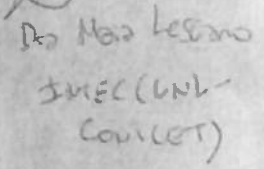 Dra Maia Lescano
IMEC (UNL-
CONICET)